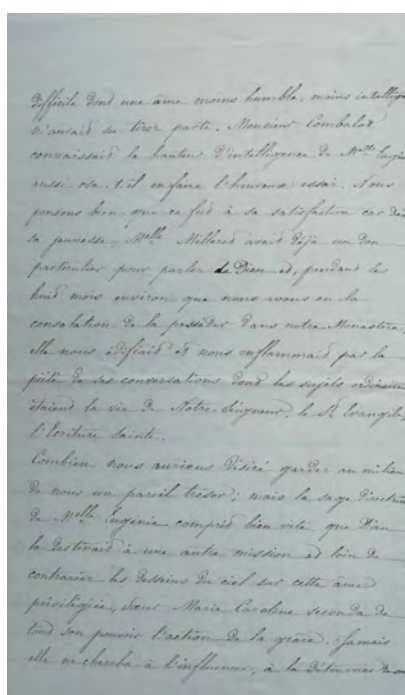 difficile dont une âme moins humble, moins intellige
n'aurait su tirer parti. Monsieur Combalot
connaissait la hauteur d'intelligence de Melle Eugén
aussi osa-t-il en faire l'heureux essai. Nous
pensons bien que ce fut à sa satisfaction car dès
sa jeunesse, Melle Milleret avait déjà un don
particulier pour parler de Dieu et, pendant les
huit mois environ que nous avons eu la
consolation de la posséder dans notre Monastère,
elle nous édifiait et nous enflammait par la
piété de ses conversations dont les sujets ordinaires
étaient la vie de Notre-Seigneur, le St Evangile,
l'Ecriture Sainte.
Combien nous aurions désiré garder au milieu
de nous un pareil trésor; mais la sage directrice
de Melle Eugénie comprit bien vite que Dieu
la destinait à une autre mission et loin de
contrarier les desseins du ciel sur cette âme
privilégiée, Sœur Marie Caroline seconda de
tout son pouvoir l'action de la grâce. Jamais
elle ne chercha à l'influencer, à la détourner de